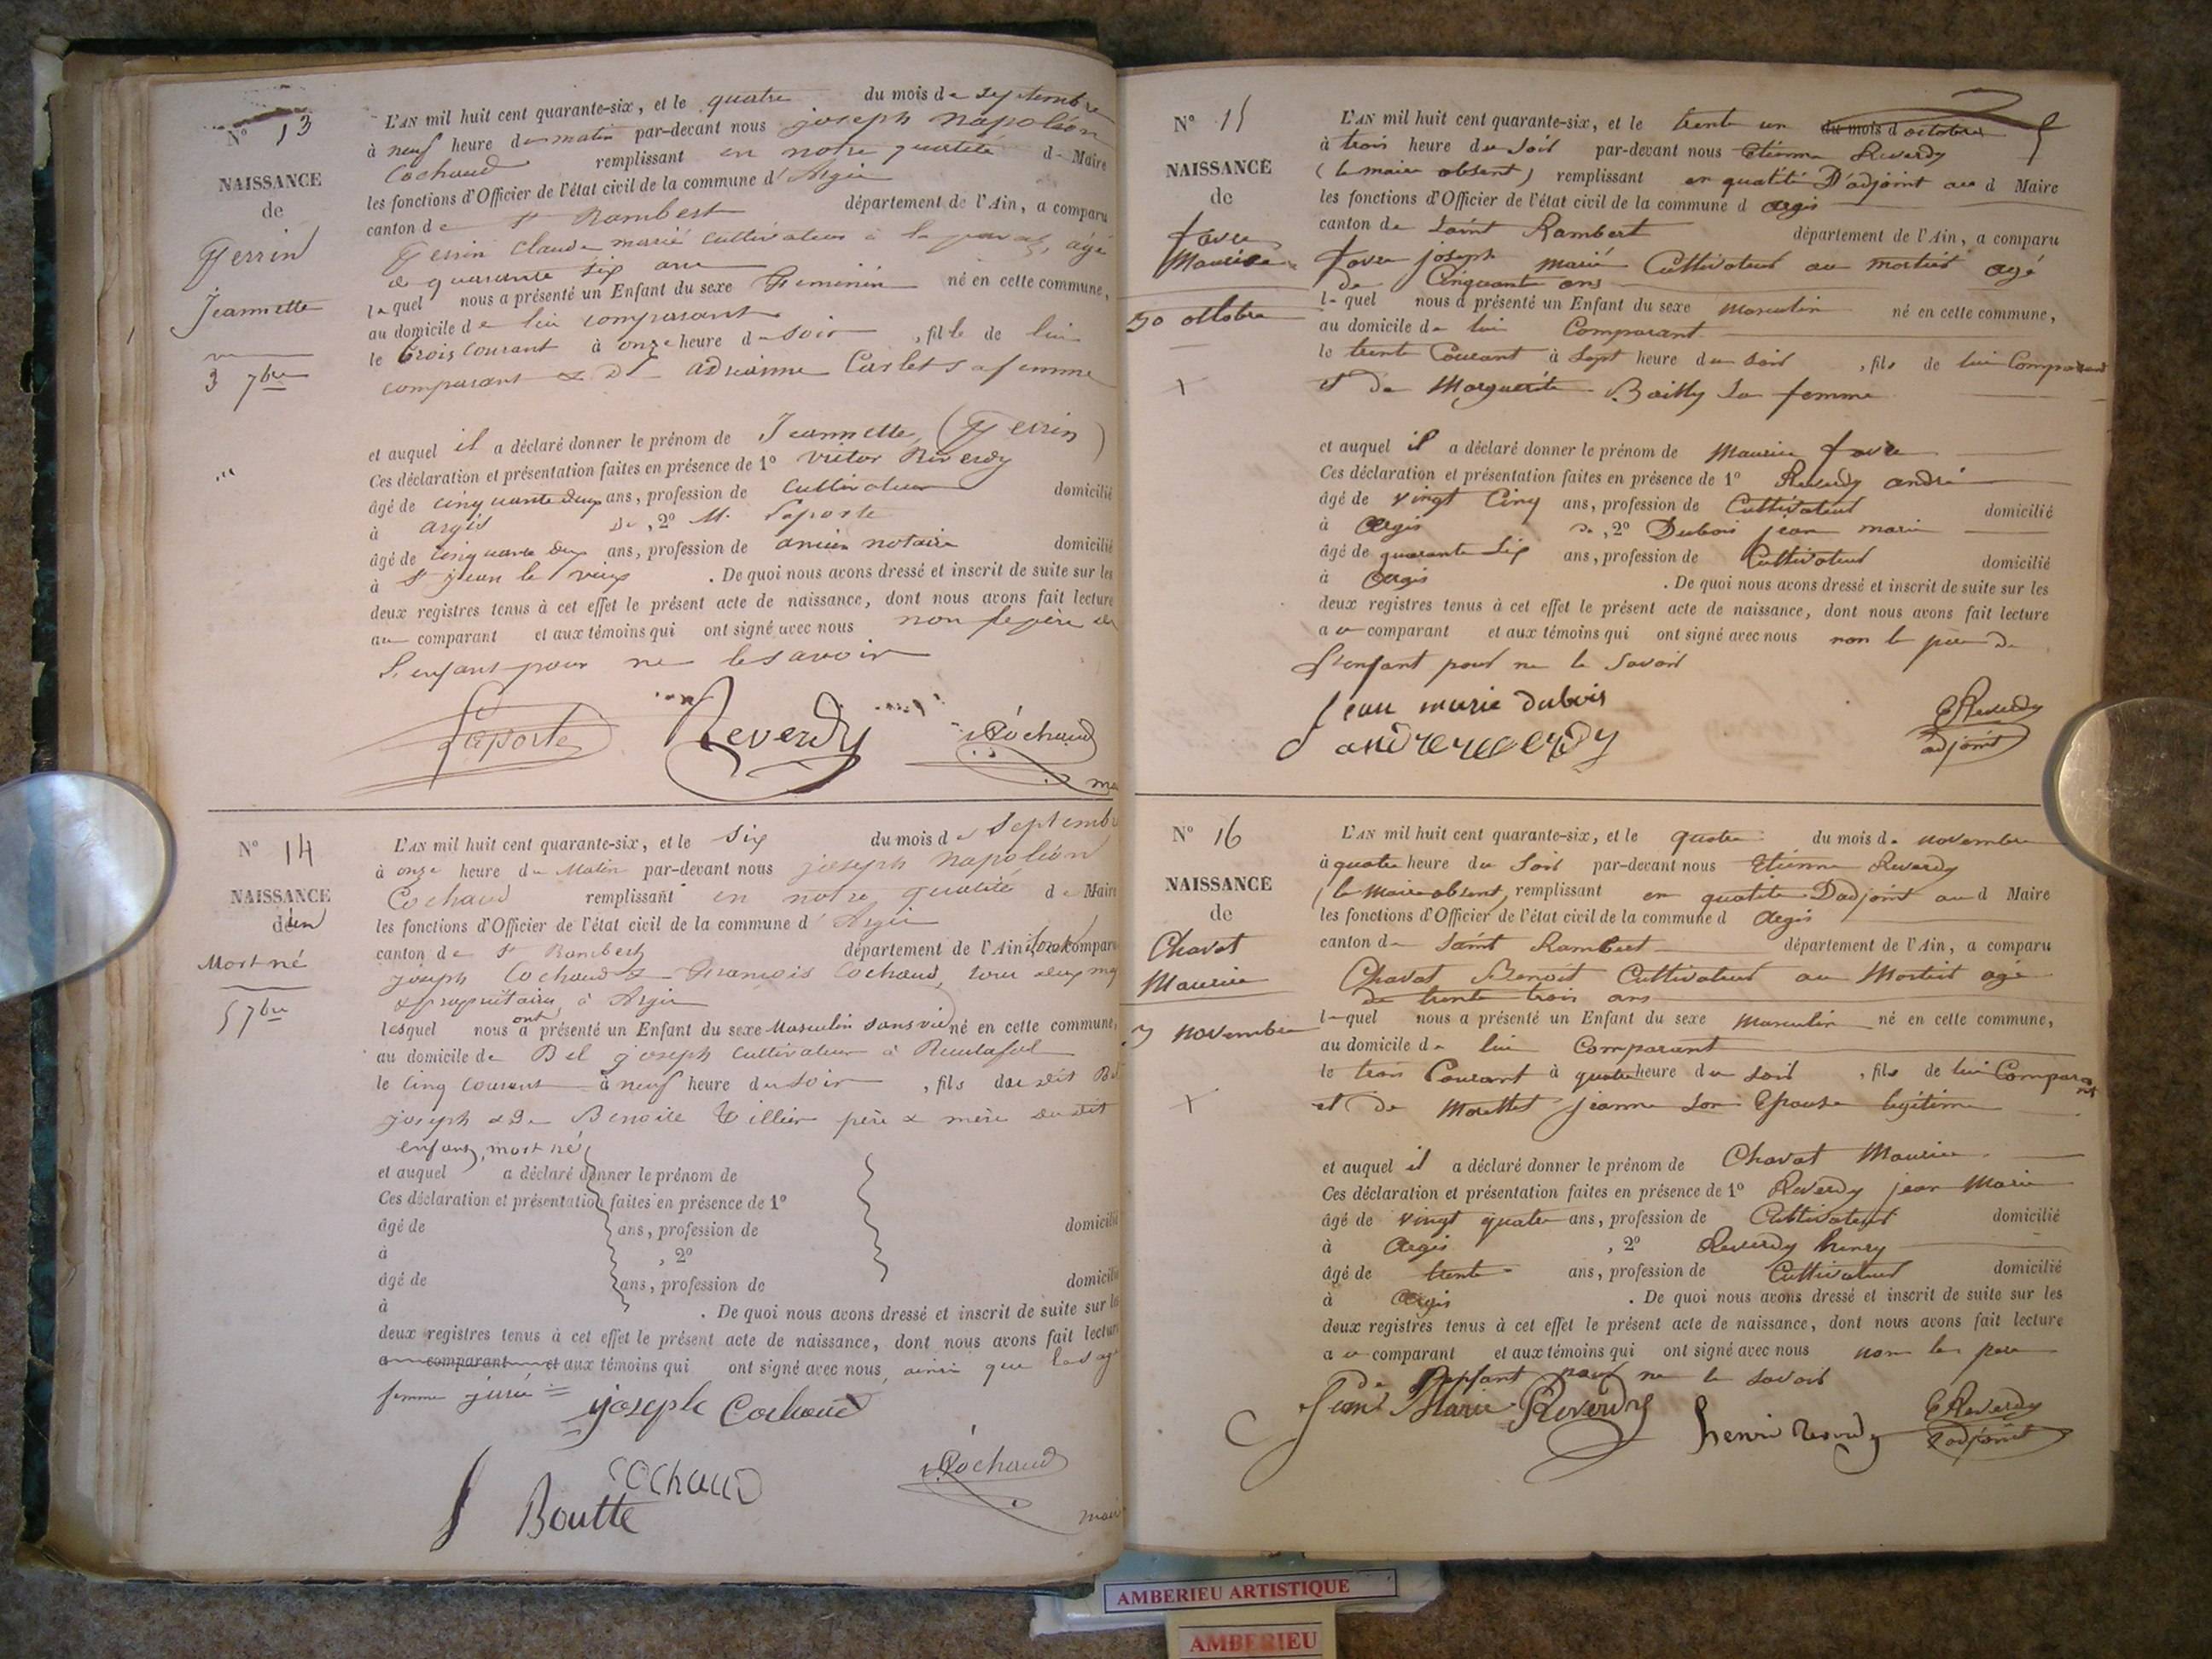 N° 13
NAISSANCE
de
Perrin
Jeannette
3 7bre
L'AN mil huit cent quarante-six, et le quatre du mois de septembre
à neuf heure du matin par-devant nous joseph Napoléon
Cochaud remplissant en notre qualité de Maire
les fonctions d'Officier de l'état civil de la commune d'Argis
canton de St Rambert département de l'Ain, a comparu
Perrin Claude marié cultivateur à âgé
de quarante six ans
lequel nous a présenté un Enfant du sexe Feminin né en cette commune,
au domicile de lui comparant
le trois courant à onze heure du soir, fille de lui
comparant & de adrianne Carlet sa femme
et auquel il a déclaré donner le prénom de Jeannette (Perrin)
Ces déclaration et présentation faites en présence de 1° victor Reverdy
âgé de cinquante deux ans, profession de cultivateur domicilié
à argis De, 2° M. Laporte
âgé de cinquante deux ans, profession de ancien notaire domicilié
à St jean le vieux. De quoi nous avons dressé et inscrit de suite sur les
deux registres tenus à cet effet le présent acte de naissance, dont nous avons fait lecture
au comparant et aux témoins qui ont signé avec nous non le père de
L'enfant pour ne le savoir
Laporte Reverdy Cochaud
N° 14
NAISSANCE
d'un
Mort né
5 7bre
L'AN mil huit cent quarante-six, et le six du mois de septembre
à onze heure du Matin par-devant nous joseph Napoléon
Cochaud remplissant en notre qualité de Maire
les fonctions d'Officier de l'état civil de la commune d'Argis
canton de St Rambert département de l'Ain, comparu
joseph Cochaud & François Cochaud, tous deux
& propriétaires à Argis
lesquel nous ont présenté un Enfant du sexe Masculin sans vie né en cette commune,
au domicile de Bel joseph cultivateur à
le cinq courant à neuf heure du soir, fils du dit Bel
joseph & de Benoite Tillier père & mère du dit
enfant, mort né
et auquel a déclaré donner le prénom de
Ces déclaration et présentation faites en présence de 1°
âgé de ans, profession de domicilié
à , 2°
âgé de ans, profession de domicilié
à . De quoi nous avons dressé et inscrit de suite sur les
deux registres tenus à cet effet le présent acte de naissance, dont nous avons fait lecture
au comparant et aux témoins qui ont signé avec nous, ainsi que la sage
femme jurée =
joseph Cochaud
Cochaud
Boutte
Cochaud
maire
N° 15
NAISSANCE
de
favre
Maurice
30 octobre
L'AN mil huit cent quarante-six, et le trente un du mois d octobre
à trois heure du Soir par-devant nous Etienne Reverdy
(le maire absent) remplissant en qualité D'adjoint au d Maire
les fonctions d'Officier de l'état civil de la commune d Argis
canton de Saint Rambert département de l'Ain, a comparu
favre joseph marié Cultivateur au mortier agé
de Cinquante ans
lequel nous a présenté un Enfant du sexe Masculin né en cette commune,
au domicile de lui Comparant
le trente Courant à Sept heure du soir, fils de lui Comparant
et de Marguerite Bailly Sa femme
et auquel il a déclaré donner le prénom de Maurice favre
Ces déclaration et présentation faites en présence de 1° Reverdy andré
âgé de vingt Cinq ans, profession de Cultivateur domicilié
à Argis De, 2° Dubois jean marie
âgé de quarante Six ans, profession de Cultivateur domicilié
à Argis. De quoi nous avons dressé et inscrit de suite sur les
deux registres tenus à cet effet le présent acte de naissance, dont nous avons fait lecture
au comparant et aux témoins qui ont signé avec nous non le père de
L'enfant pour ne le Savoir
jean marie dubois
andre reverdy
E Reverdy
adjoint
N° 16
NAISSANCE
de
Chavat
Maurice
3 novembre
L'AN mil huit cent quarante-six, et le quatre du mois de novembre
à quatre heure du Soir par-devant nous Etienne Reverdy
(le Maire absent, remplissant en qualité D'adjoint au d Maire
les fonctions d'Officier de l'état civil de la commune d Argis
canton de Saint Rambert département de l'Ain, a comparu
Chavat Benoit Cultivateur au Mortier agé
de trente trois ans
lequel nous a présenté un Enfant du sexe Masculin né en cette commune,
au domicile de lui Comparant
le trois Courant à quatre heure du soir, fils de lui Comparant
et de Morettet jeanne Son Epouse légitime
et auquel il a déclaré donner le prénom de Chavat Maurice
Ces déclaration et présentation faites en présence de 1° Reverdy jean Marie
âgé de vingt quatre ans, profession de Cultivateur domicilié
à Argis, 2° Reverdy henry
âgé de trente ans, profession de Cultivateur domicilié
à Argis. De quoi nous avons dressé et inscrit de suite sur les
deux registres tenus à cet effet le présent acte de naissance, dont nous avons fait lecture
au comparant et aux témoins qui ont signé avec nous non le père
de l'enfant pour ne le savoir
Jean Marie Reverdy
henri Reverdy
E Reverdy
adjoint
AMBERIEU ARTISTIQUE
AMBERIEU